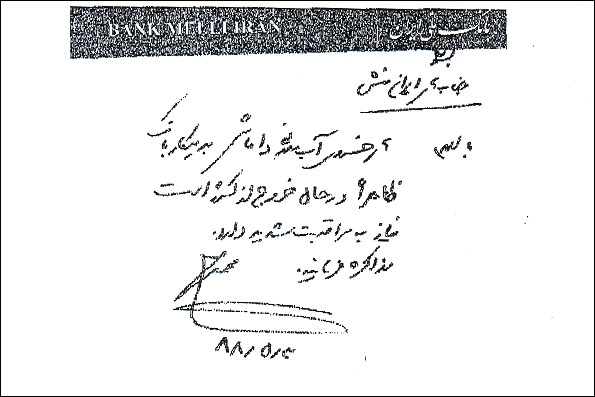 BANK MELLI IRAN بانک ملی ایران
جناب آقای ایران منش
با سلام آقای خسروی آب داماش بدهکار بانک
ظاهراً در حال خروج از کشور است
نیاز به مراقبت شدید دارد.
مذاکره فرمایید.
۸۸/۵/